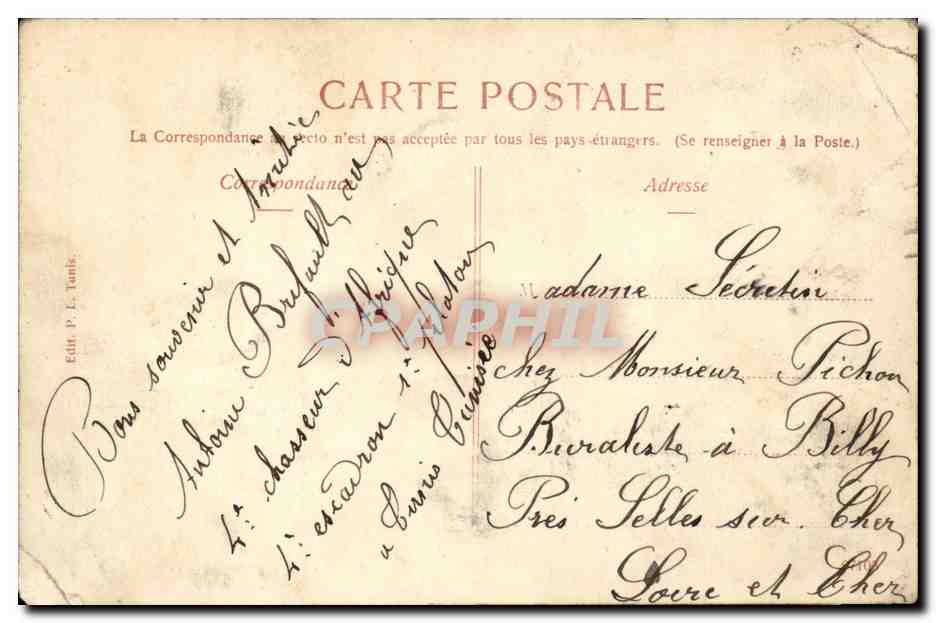 CARTE POSTALE
La Correspondance au recto n'est pas acceptée par tous les pays étrangers. (Se renseigner à la Poste.)
Correspondance
Adresse
Edit. P. L. Tunis.
Bons souvenir et Amitiés
Antoine Brifault au
4e chasseur d'Afrique
4e escadron 1er peloton
a Tunis Tunisie
Madame Sécretin
chez Monsieur Pichon
Buraliste à Billy
Près Selles sur Cher
Loire et Cher
CPAPHIL